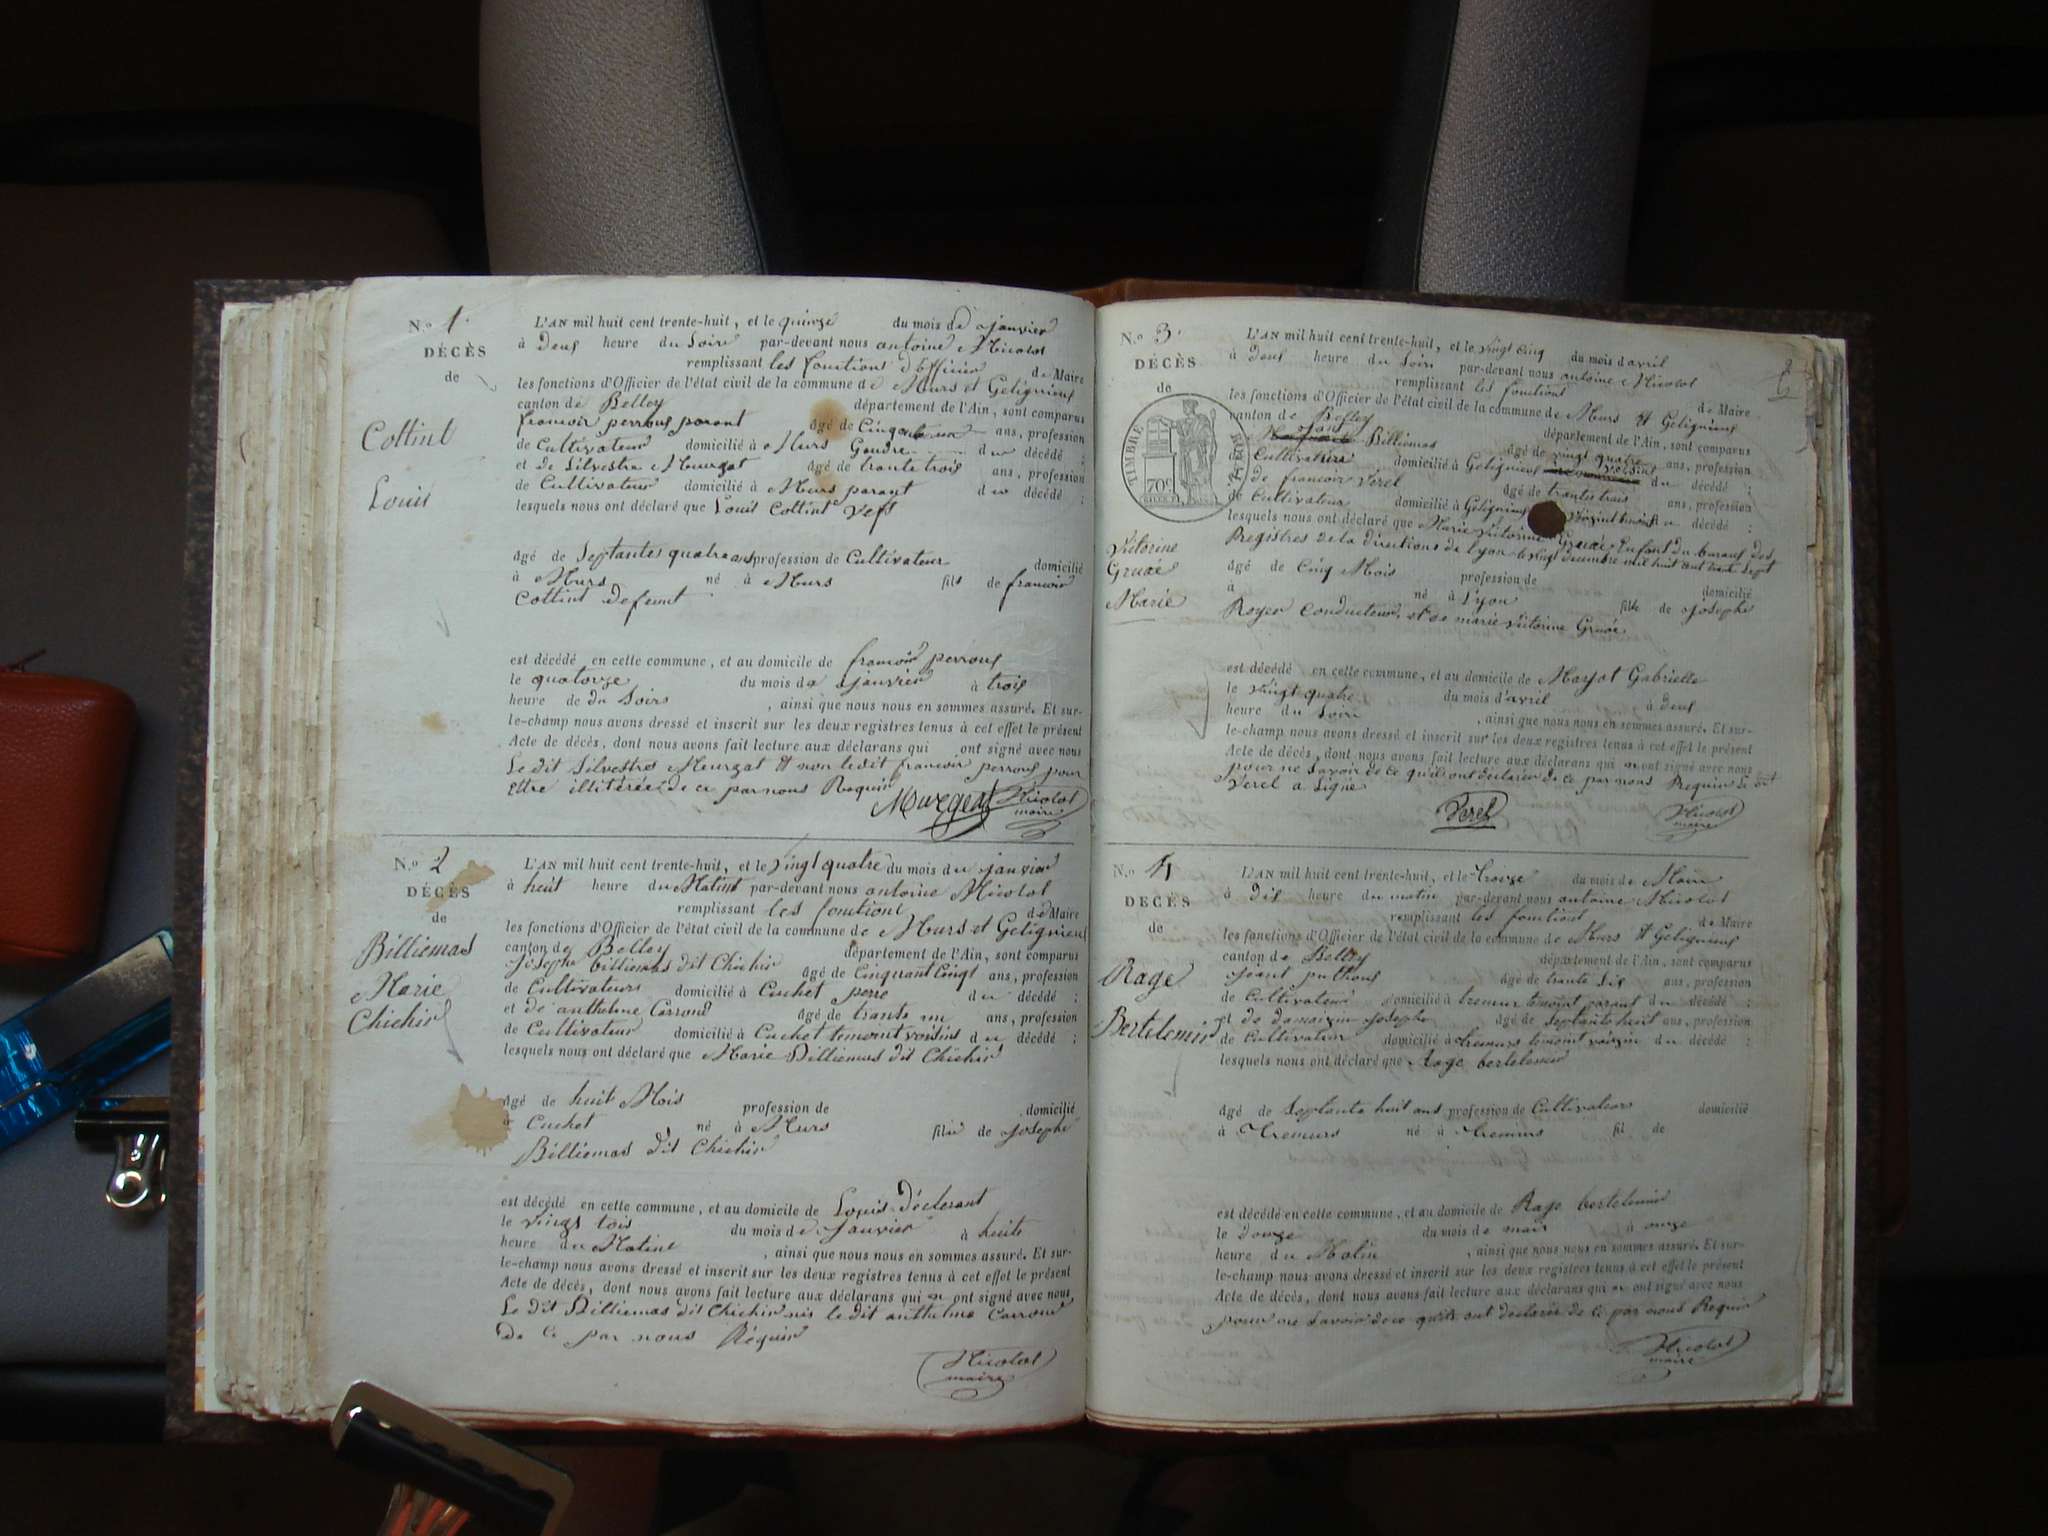 N.o 1.
DÉCÈS
de
Cottint
Louis
L'AN mil huit cent trente-huit, et le quinze du mois de janvier
à deus heure du Soire par-devant nous antoine Nicolot
remplissant les fonctions d'officier de Maire
les fonctions d'Officier de l'état civil de la commune de Murs et Gelignieus
canton de Belley département de l'Ain, sont comparus
francois perrous parant agé de Cinquante ans, profession
de Cultivateur domicilié à Murs Gendre du décédé ;
et de Silvestre Meurgat agé de trante trois ans, profession
de Cultivateur domicilié à Murs parant du décédé ;
lesquels nous ont déclaré que Louis Cottint Vef
agé de Septantes quatre ans profession de Cultivateur domicilié
à Murs né à Murs fils de francois
Cottint defeunt
est décédé en cette commune, et au domicile de francois perrous
le quatorze du mois de janvier à trois
heure de du Soire , ainsi que nous nous en sommes assuré. Et sur-
le-champ nous avons dressé et inscrit sur les deux registres tenus à cet effet le présent
Acte de décès, dont nous avons fait lecture aux déclarans qui ont signé avec nous
Le dit Silvestres Meurgat et non ledit francois perrous pour
Ettre illitérée de ce par nous Requir
Murgeat Nicolot
maire
N.o 2
DÉCÈS
de
Billiemas
Marie
Chichir
L'AN mil huit cent trente-huit, et le vingt quatre du mois du janvier
à huit heure du Matint par-devant nous antoine Nicolot
remplissant les fonctions de Maire
les fonctions d'Officier de l'état civil de la commune de Murs et Gelignieus
canton de Belley département de l'Ain, sont comparus
josephe billiemas dit Chichir agé de Cinquant Cinqt ans, profession
de Cultivateurs domicilié à Cuchet perre du décédé ;
et de anthelme Carrond agé de trante un ans, profession
de Cultivateur domicilié à Cuchet temoint voisins du décédé ;
lesquels nous ont déclaré que Marie Billiemas dit Chichir
agé de huit Mois profession de domicilié
à Cuchet né à Murs fille de josephe
Billiemas dit Chichir
est décédé en cette commune, et au domicile de Louis déclerant
le vingt tois du mois de janvier à huite
heure du Matint , ainsi que nous nous en sommes assuré. Et sur-
le-champ nous avons dressé et inscrit sur les deux registres tenus à cet effet le présent
Acte de décès, dont nous avons fait lecture aux déclarans qui n ont signé avec nous
Le dit Billiemas dit Chichir nis le dit anthelme Carrond
de Ce par nous Réquir
Nicolot
maire
N.o 3.
DÉCÈS
de
TIMBRE ROYAL
70c
Victorine
Gruaé
Marie
L'AN mil huit cent trente-huit, et le vingt cinq du mois d'avril
à deus heure du Soire par-devant nous antoine Nicolot
remplissant les fonctions de Maire
les fonctions d'Officier de l'état civil de la commune de Murs et Gelignieus
canton de Belley département de l'Ain, sont comparus
Billiemas agé de vingt quatre ans, profession
de Cultivateur domicilié à Gelignieus du décédé ;
de francois Verel agé de trantes trois ans, profession
de Cultivateur domicilié à Gelignieus décédé ;
lesquels nous ont déclaré que Marie Victorine Gruaé Enfant du bureaux des
Registres de la directions de Lyon le vingt decembre mil huit cent trante sept
agé de Cinq Mois profession de domicilié
à né à Lyon fille de josephe
Royer Conducteur, et de marie victorine Gruaé
est décédé en cette commune, et au domicile de Marjot Gabrielle
le vingt quatre du mois d'avril à deus
heure du Soire , ainsi que nous nous en sommes assuré. Et sur-
le-champ nous avons dressé et inscrit sur les deux registres tenus à cet effet le présent
Acte de décès, dont nous avons fait lecture aux déclarans qui n ont signé avec nous
pour ne Savoir de ce qu'il ont déclarée de ce par nous Requir le dit
Verel a Signé
Verel Nicolot
maire
N.o 4
DÉCÈS
de
Rage
Bertelemis
L'AN mil huit cent trente-huit, et le treize du mois de Mair
à dis heure du matin par-devant nous antoine Nicolot
remplissant les fonctions de Maire
les fonctions d'Officier de l'état civil de la commune de Murs et Gelignieus
canton de Belley département de l'Ain, sont comparus
jéant puthous agé de trante Sis ans, profession
de Cultivateur domicilié à tremurs temoint parant du décédé ;
et de damaizin josephe agé de Septante huit ans, profession
de Cultivateur domicilié à tremurs temoint voizin du décédé ;
lesquels nous ont déclaré que Rage bertelemis
agé de Septante huit ans profession de Cultivateur domicilié
à Tremurs né à Tremurs fil de
est décédé en cette commune, et au domicile de Rage bertelemis
le douze du mois de mair à onze
heure du Matin , ainsi que nous nous en sommes assuré. Et sur-
le-champ nous avons dressé et inscrit sur les deux registres tenus à cet effet le présent
Acte de décès, dont nous avons fait lecture aux déclarans qui n ont signé avec nous
pour ne Savoir de ce qu'ils ont déclarée de Ce par nous Requir
Nicolot
maire